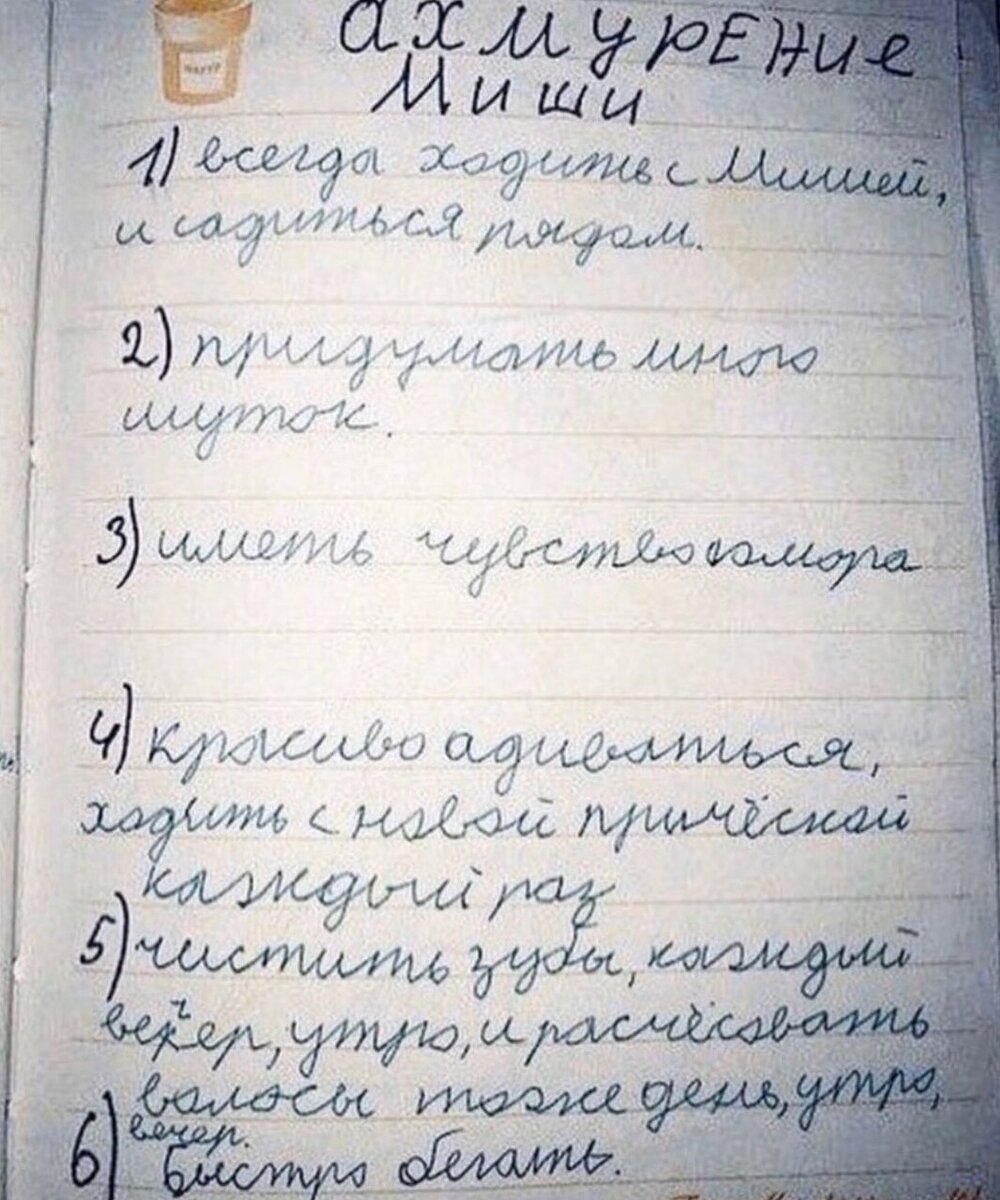 ахмурЕНие
Миши
1) всегда ходить с Мишей,
и садиться рядом.
2) придумать много
шуток.
3) иметь чувство юмора
4) красиво адиваться,
ходить с новой причёской
каждый раз
5) чистить зубы, каждый
вечер, утро, и расчёсовать
волосы тоже день, утро,
вечер.
6) Быстро бегать.